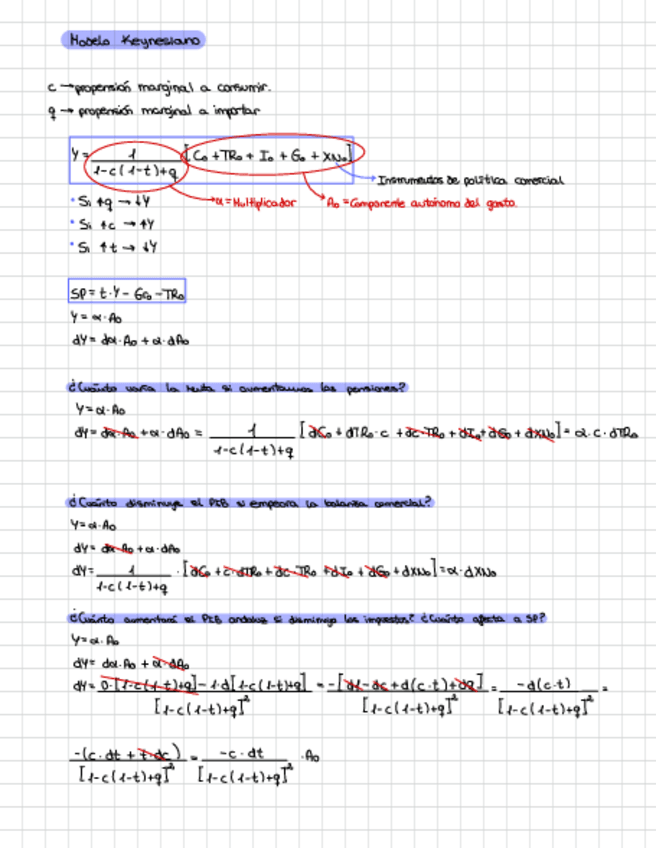 Modelo Keynesiano
c → propensión marginal a consumir.
q → propensión marginal a importar
Y = 1 / 1-c(1-t)+q [C₀ + TR₀ + I₀ + G₀ + XN₀]
→ Instrumentos de política comercial
→ α = Multiplicador
A₀ = Componente autónomo del gasto.
• Si ↑q → ↓Y
• Si ↑c → ↑Y
• Si ↑t → ↓Y
SP = t·Y - G₀ - TR₀
Y = α·A₀
dY = dα·A₀ + α·dA₀
¿Cuánto varía la renta si aumentamos las pensiones?
Y = α·A₀
dY = dα·A₀ + α·dA₀ = 1 / 1-c(1-t)+q [dC₀ + dTR₀·c + dc·TR₀ + dI₀ + dG₀ + dXN₀] = α·c·dTR₀
¿Cuánto disminuye el PIB si empeora la balanza comercial?
Y = α·A₀
dY = dα·A₀ + α·dA₀
dY = 1 / 1-c(1-t)+q · [dC₀ + c·dTR₀ + dc·TR₀ + dI₀ + dG₀ + dXN₀] = α·dXN₀
¿Cuánto aumentará el PIB andaluz si disminuyo los impuestos? ¿Cuánto afecta a SP?
Y = α·A₀
dY = dα·A₀ + α·dA₀
dY = 0·[1-c(1-t)+q] - 1·d[1-c(1-t)+q] / [1-c(1-t)+q]² = -[d1-dc+d(c·t)+dq] / [1-c(1-t)+q]² = -d(c·t) / [1-c(1-t)+q]² =
-(c·dt + t·dc) / [1-c(1-t)+q]² = -c·dt / [1-c(1-t)+q]² · A₀